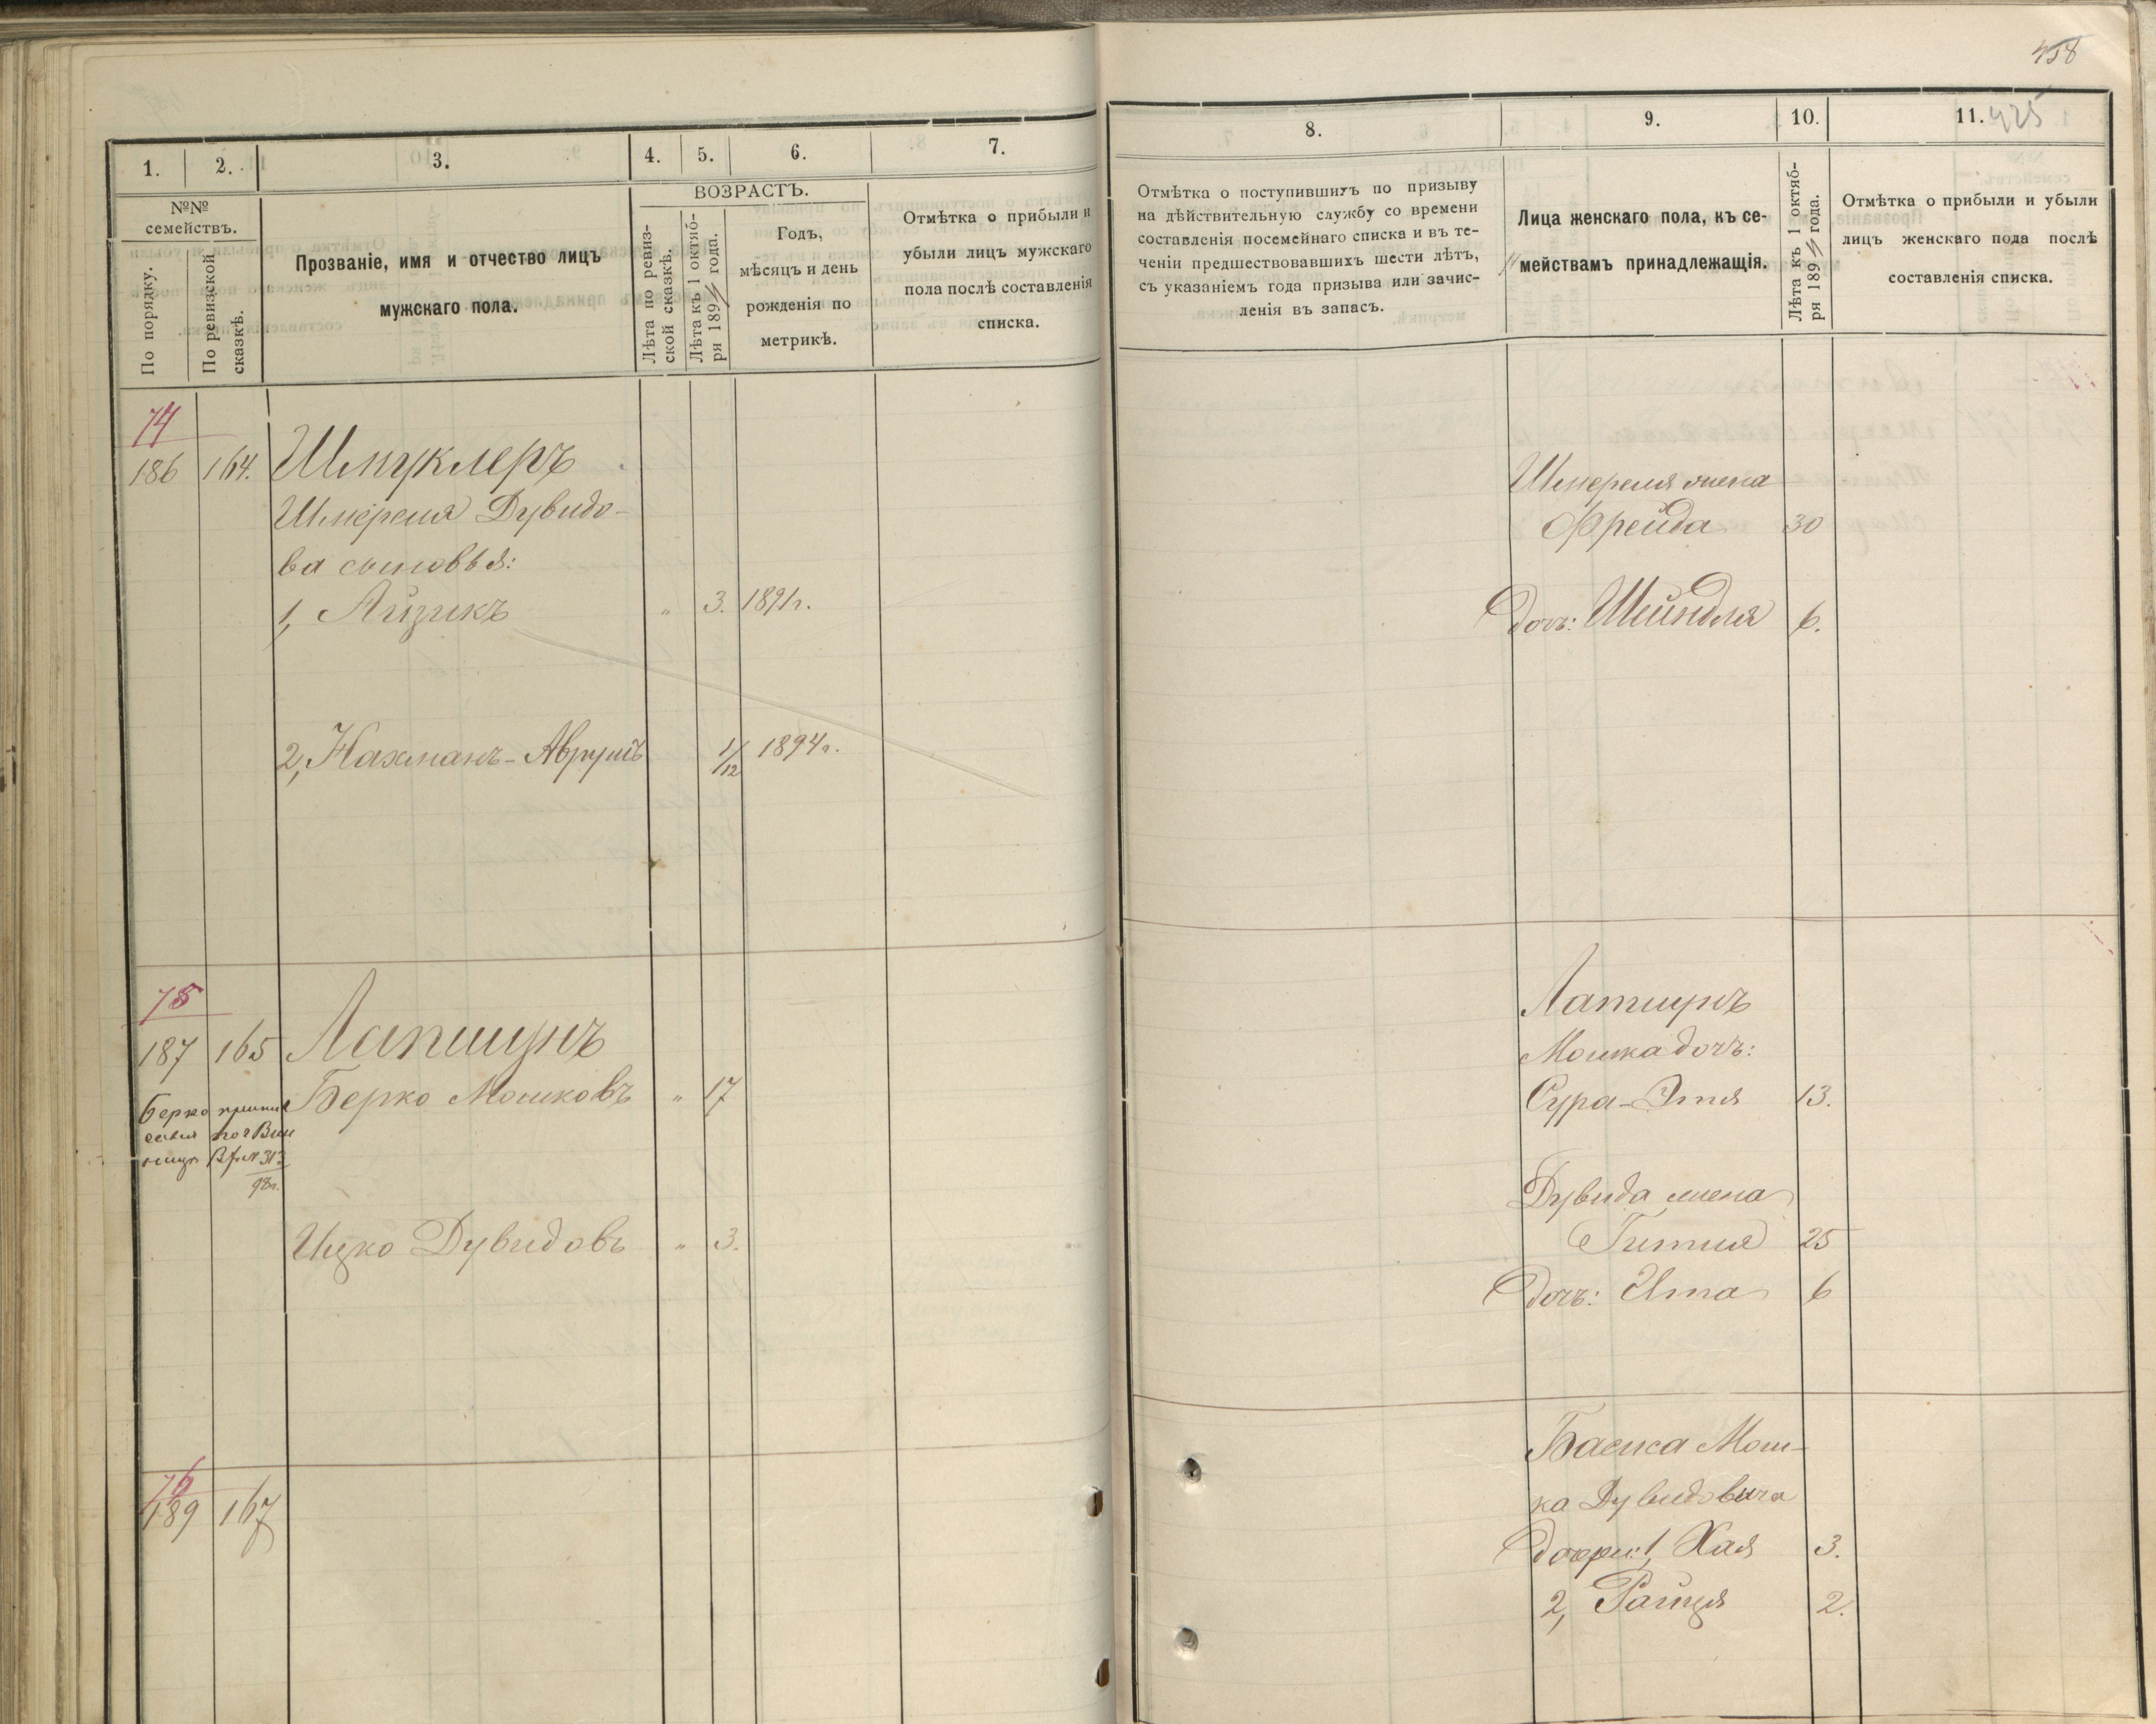 458
425
1.
2.
3.
4.
5.
6.
7.
№№ семействъ.
По порядку.
По ревизской сказкѣ.
Прозваніе, имя и отчество лицъ
мужскаго пола.
ВОЗРАСТЪ.
Лѣта по ревиз-
ской сказкѣ.
Лѣта къ 1 октяб-
ря 1894 года.
Годъ,
мѣсяцъ и день
рожденія по
метрикѣ.
Отмѣтка о прибыли и
убыли лицъ мужскаго
пола послѣ составленія
списка.
74
186 164. Шмуклеръ
Шмереля Дувидо-
ва сыновья:
1, Айзикъ " 3. 1891 г.
2, Нахманъ-Аврумъ 1/12 1894 г.
75
187 165 Лапшунъ
Берко Мошковъ " 17
Берко
№ 313
98 г.
Ицко Дувидовъ " 3.
76
189 167
8.
9.
10.
11.
Отмѣтка о поступившихъ по призыву
на дѣйствительную службу со времени
составленія посемейнаго списка и въ те-
ченіи предшествовавшихъ шести лѣтъ,
съ указаніемъ года призыва или зачис-
ленія въ запасъ.
Лица женскаго пола, къ се-
мействамъ принадлежащія.
Лѣта къ 1 октяб-
ря 1894 года.
Отмѣтка о прибыли и убыли
лицъ женскаго пола послѣ
составленія списка.
Шмереля жена
Фрейда 30
дочь: Шейндля 6.
Лапшунъ
Мошка дочь:
Сура-Этя 13.
Дувида жена
Гитля 25
дочь: Ита 6
Баска Мош-
ка Дувидовича
дочери: 1, Хая 3.
2, Райця 2.